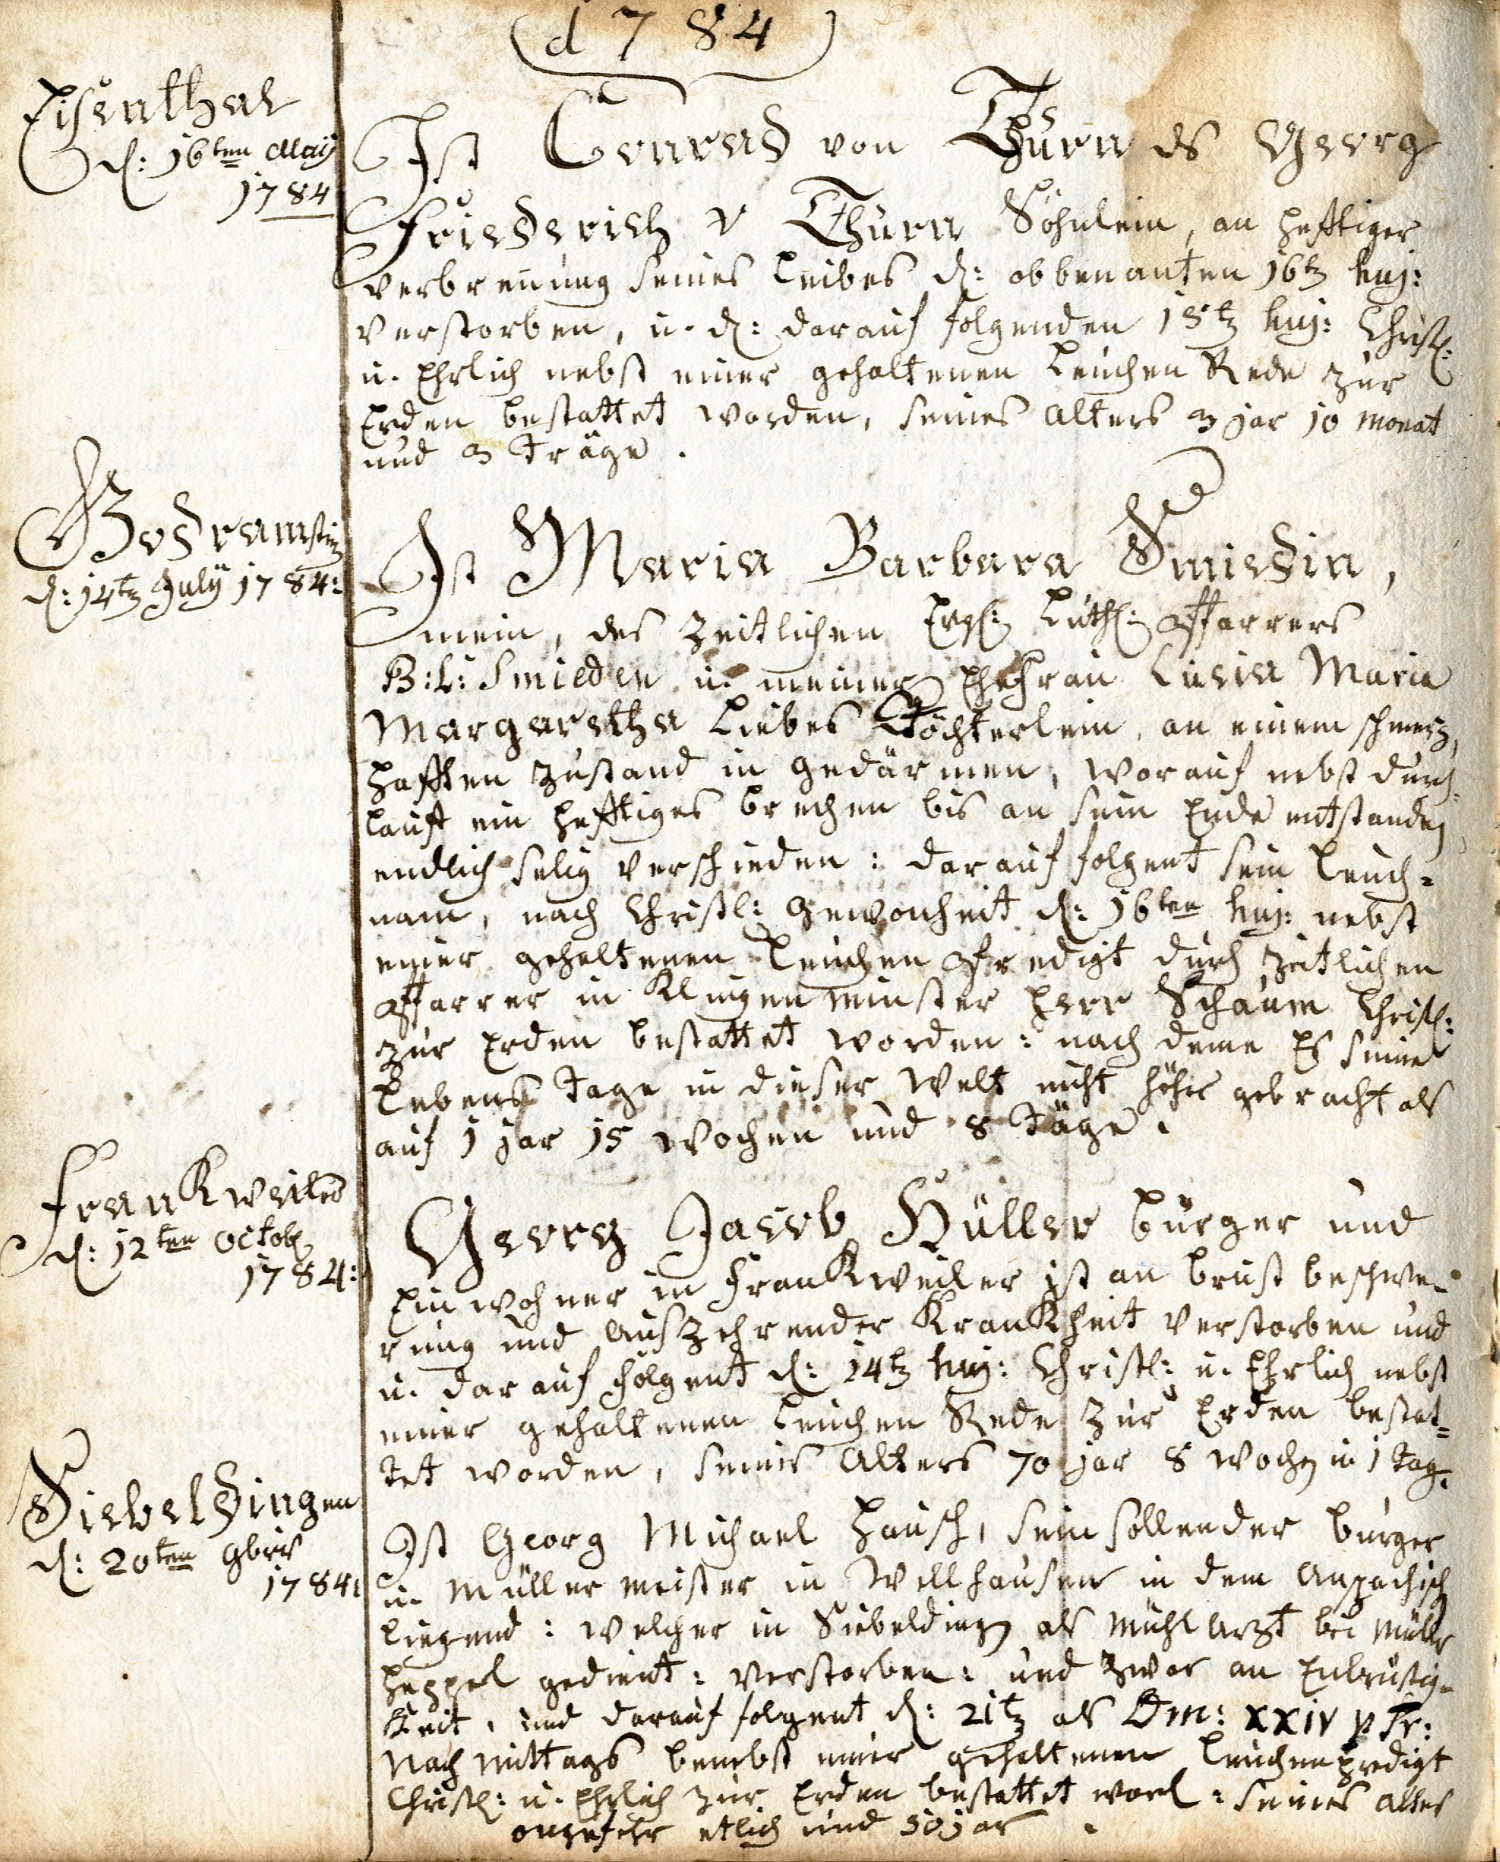 d 7 84
Eisenthal
d: 16ten Maij
1784
Ist Conrad von Thurn des Georg
Friederich v Thurn Söhnlein, an hefftiger
verbrennung seines Leibes d: obbenanten 16tz huj:
verstorben, u. d: darauf folgenden 18tz huj: Christl:
u. Ehrlich nebst einer gehaltenen Leichen Rede zur
Erden bestattet worden, seines Alters 3 jar 10 monat
und 3 Träge.
Godramstein
d: 14tz Julij 1784:
Ist Maria Barbara Smiedin,
mein, des zeitlichen Evgl: Luth: Pfarrers
B: L: Smieden u. meiner Ehefrau Luisa Maria
Margaretha Liebes Töchterlein, an einem schmerz,
hafften Zustand in gedärmen, worauf nebst durch
lauft ein hefftiges brechen bis an sein Ende entstanden
endlich selig verschieden: darauf folgent sein Leich=
nam, nach Christl: Gewonheit d: 16ten huj: nebst
einer gehaltenen Leichen Predigt durch Zeitlichen
Pfarrer in Klingenminster Herr Schaum Christl:
zur Erden bestattet worden: nach deme Es seine
Lebens Tage in dieser Welt nicht höher gebracht als
auf 1 jar 15 wochen und 8 Täge.
Frankweiler
d: 12ten Octob
1784:
Georg Jacob Hüller bürger und
Einwohner in Frankweiler ist an brust beschwe-
rung und Auszehrender Krankheit verstorben und
u. darauf folgent d: 14tz huj: Christl: u. Ehrlich nebst
einer gehaltenen Leichen Rede zur Erden bestat=
tet worden, seines Alters 70 jar 8 wochen u. 1 Tag.
Siebeldingen
d: 20ten 9bris
1784:
Ist Georg Michael Hausch, seinsollender burger
u. Müllermeister in Wellhausen in dem Anspachisch
liegend: welcher in Siebeldingen als Mühl Arzt bei Müller
Heppel gedient: verstorben: und zwar an Enbrüstig-
keit, und darauf folgent d: 21tz als Dm: XXIV p Tr:
Nachmittags benebst einer gehaltenen Leichenpredigt
Christl: u. Ehrlich zur Erden bestattet word: seines Alters
ongefehr etlich und 50 jar.